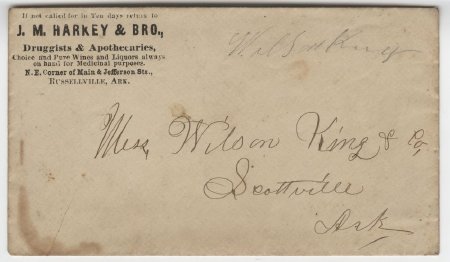 If not called for in Ten days return to
J. M. HARKEY & BRO.,
Druggists & Apothecaries,
Choice and Pure Wines and Liquors always
on hand for Medicinal purposes.
N. E. Corner of Main & Jefferson Sts.,
RUSSELLVILLE, ARK.
King
Mess, Wilson King & Co,
Scottville
Ark